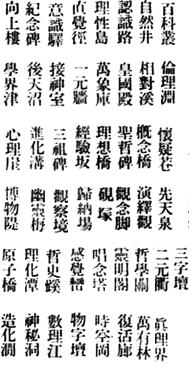 百科叢 倫理淵 懷疑巷 先天泉 三字壇
自然井 相對溪 概念橋 演繹觀 二元衢 眞理界
認識路 皇國殿 聖哲碑 觀念脚 哲學關 萬有林
理性島 萬象庫 理想橋 硯塚 靈明閣 復活廊
直覺徑 一元牆 經驗坂 歸納場 唱念塔 時空岡
意識驛 接神室 三祖碑 觀察境 感覺巒 物字壇
紀念碑 後天沼 進化溝 幽靈梅 哲史蹊 數理江
向上樓 學界津 心理崖 博物隄 理化潭 神秘洞
原子橋 造化澗